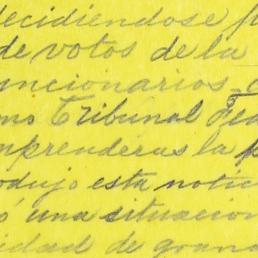 decidiendose p
de votos de la
uncionarios
mo Tribunal Fed
mprenderas la p
odujo esta notic
ó una situacion
idad de grand